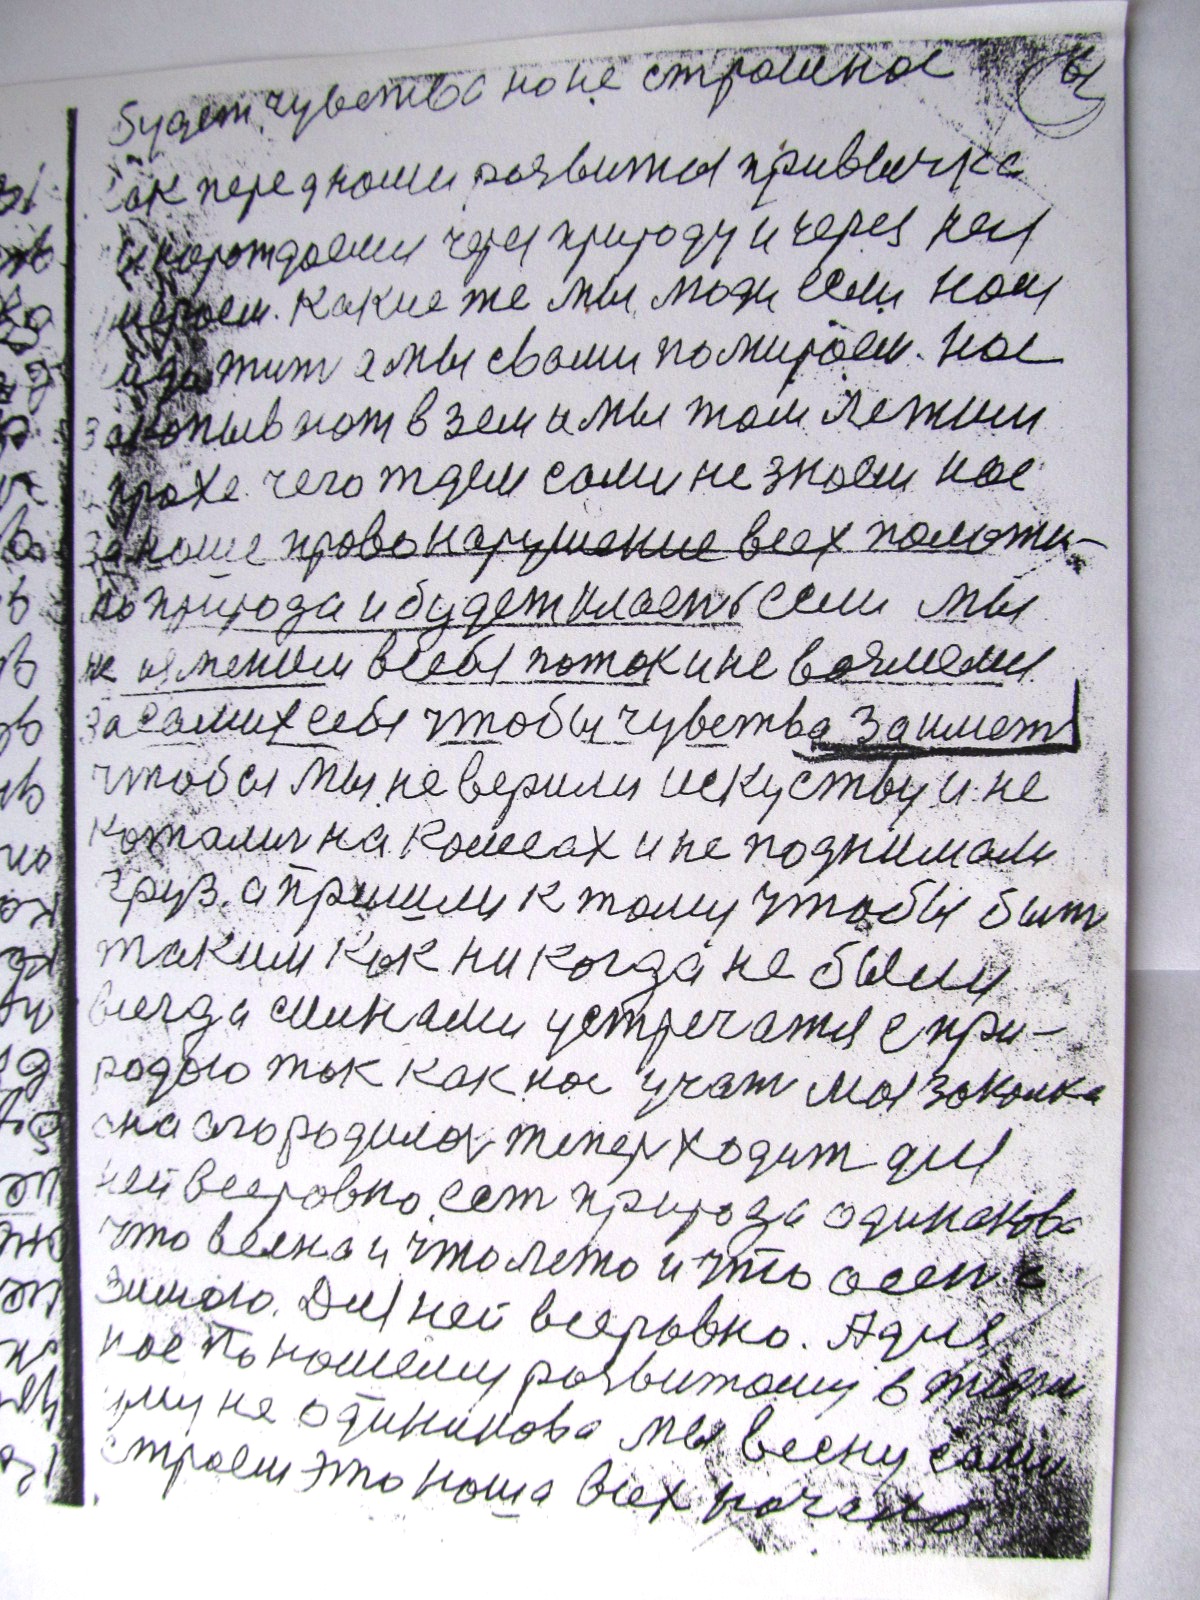 будет чувства но не страшное
ак перед нами развитая привычка
и нарождаеми через природу и через нея
мераем. Какие же мы люди если нам
жит а мы свами помираем. нас
закопывают в зем а мы там лежим
прахе чего ждем сами не знаем нас
за наше право нарушение всех положи-
ла природа и будет класть если мы
не изменим в себя поток и не возмемся
за самих себя чтобы чувства заимет
чтобы мы не верили искуству и не
котались на колесах и не поднимали
груз. а пришли к тому чтобы быт
таким как никогда не были
всегда синами устречатя с при-
родою так как нас учат моя заколка
она огородилас тепер ходит для
ней всеровно ест природа одинакова
что весна и что лето и что осен с
зимою. Для ней всеровно. А для
нас по нашему развитому в
ему не одинакова мы весну сами
строем это наша всех начало